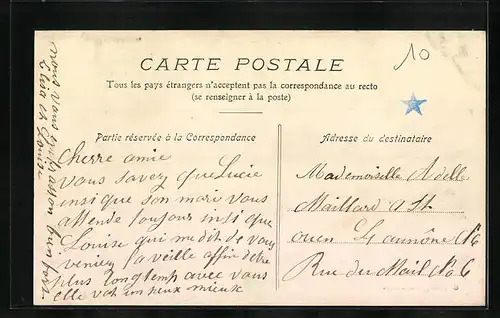 10
CARTE POSTALE
Tous les pays étrangers n'acceptent pas la correspondance au recto
(se renseigner à la poste)
Partie réservée à la Correspondance
Cherre amie
vous savez que Lucie
insi que son mari vous
attende toujours insi que
Louise qui me dit de vous
venier la veille affin d'etre
plus longtemp avec vous
elle vat un peux mieux
nous vous
bien fort
Elisa et Louise
Adresse du destinataire
Mademoiselle Adelle
Maillard a St
ouen L'aumône
Rue du Mail No 6